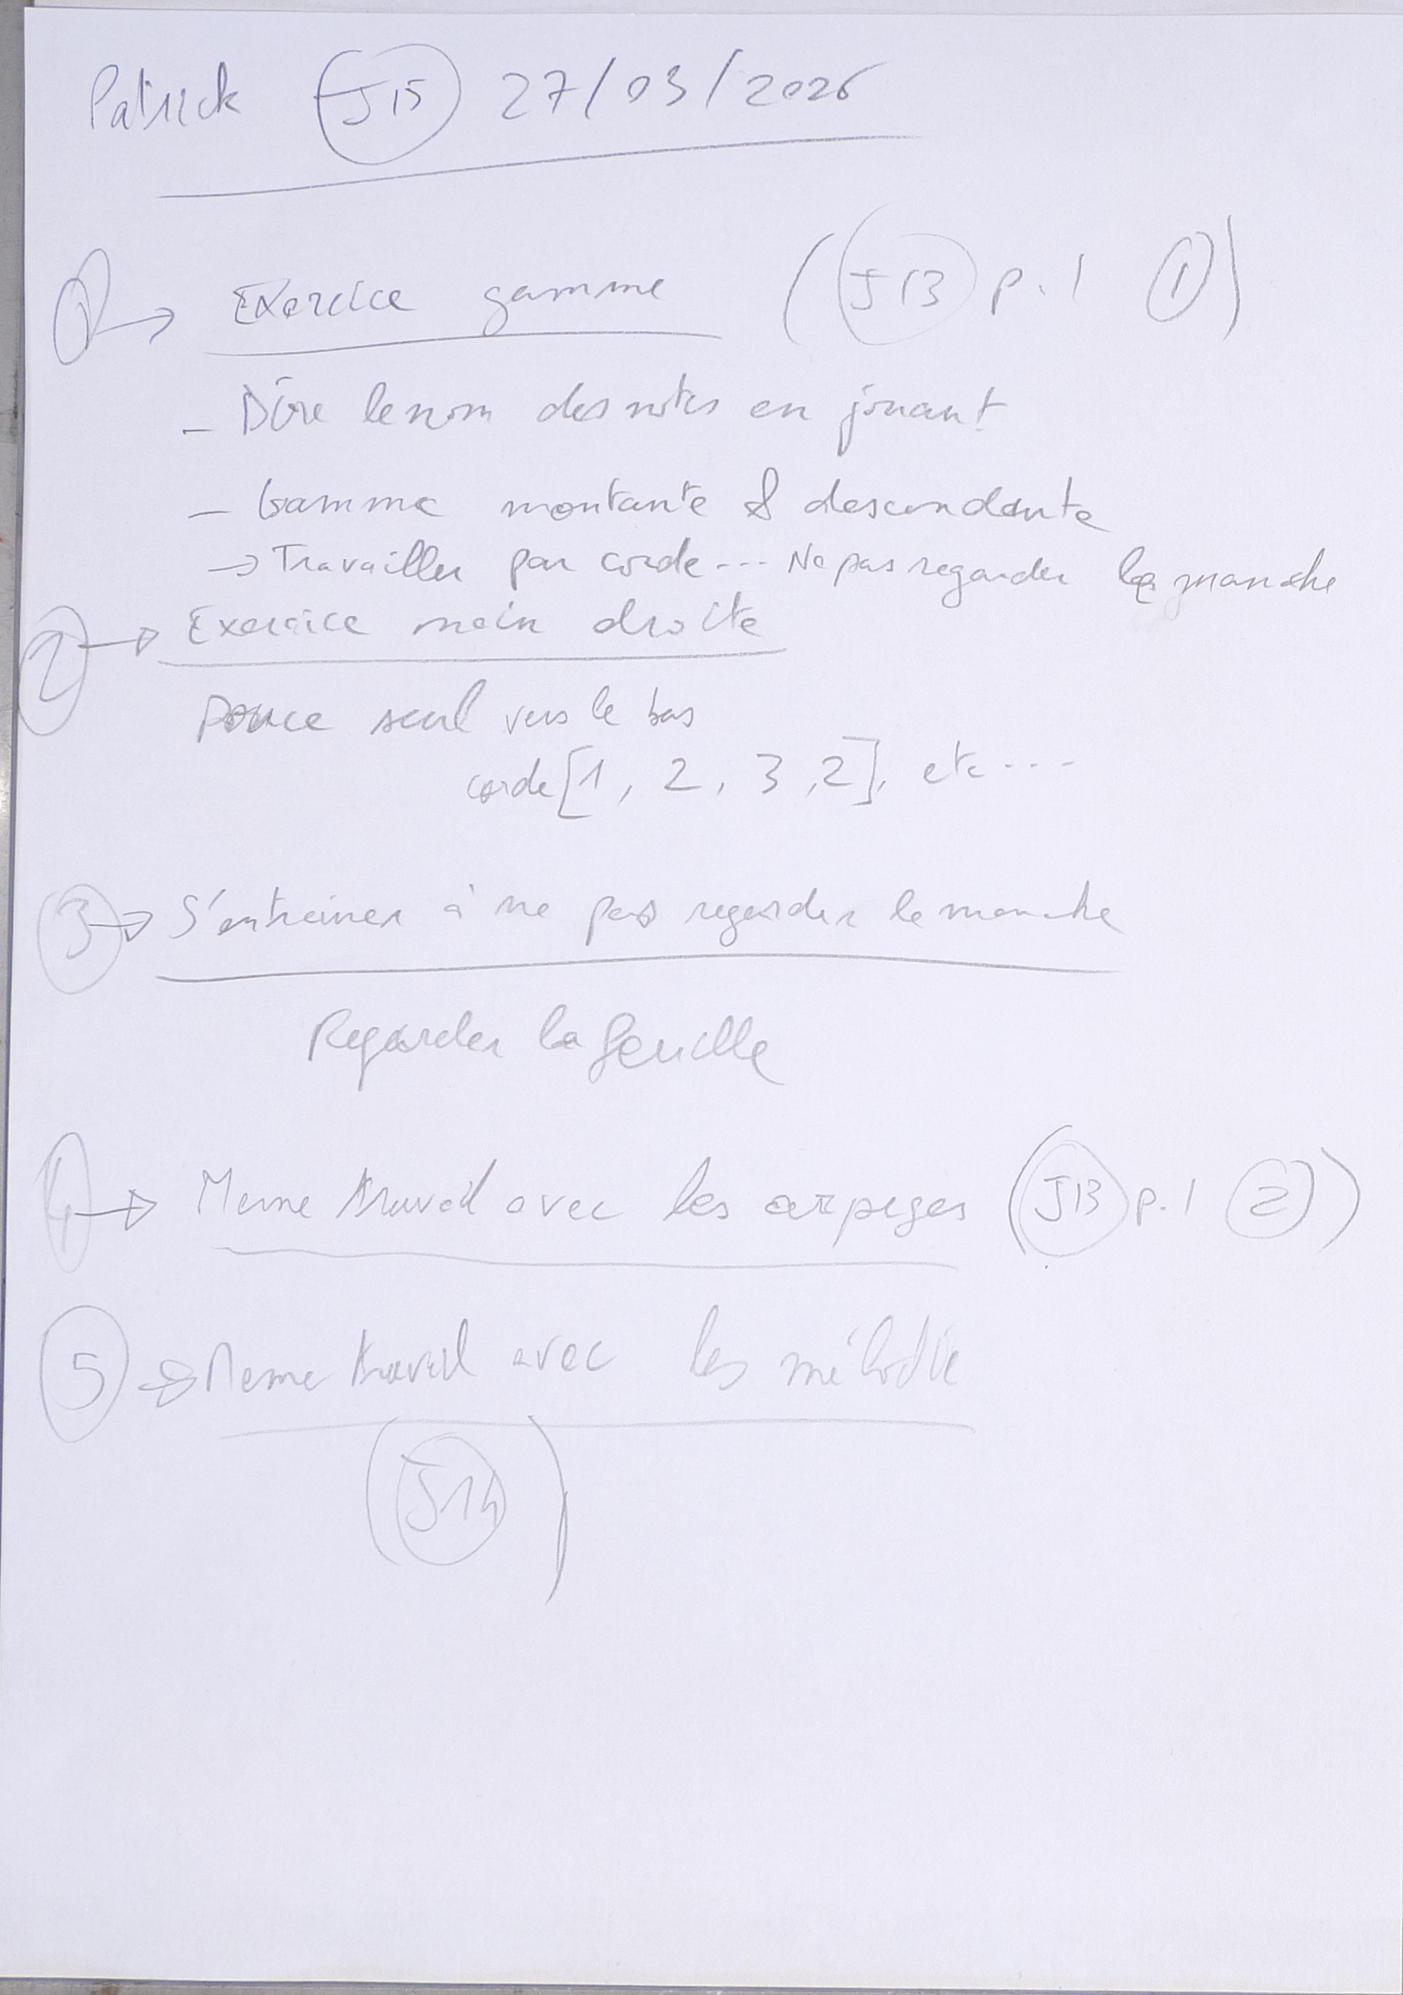 Patrick J15 27/03/2026
1 → Exercice gamme (J13 p.1 1)
- Dire le nom des notes en jouant
- Gamme montante & descendante
→ Travailler par corde... Ne pas regarder le manche
2 → Exercice main droite
Pouce seul vers le bas
corde [1, 2, 3, 2], etc....
3 → S'entrainer à ne pas regarder le manche
Regarder la feuille
4 → Meme travail avec les arpeges (J13 p.1 2)
5 → Meme travail avec les mélodie
(J14)